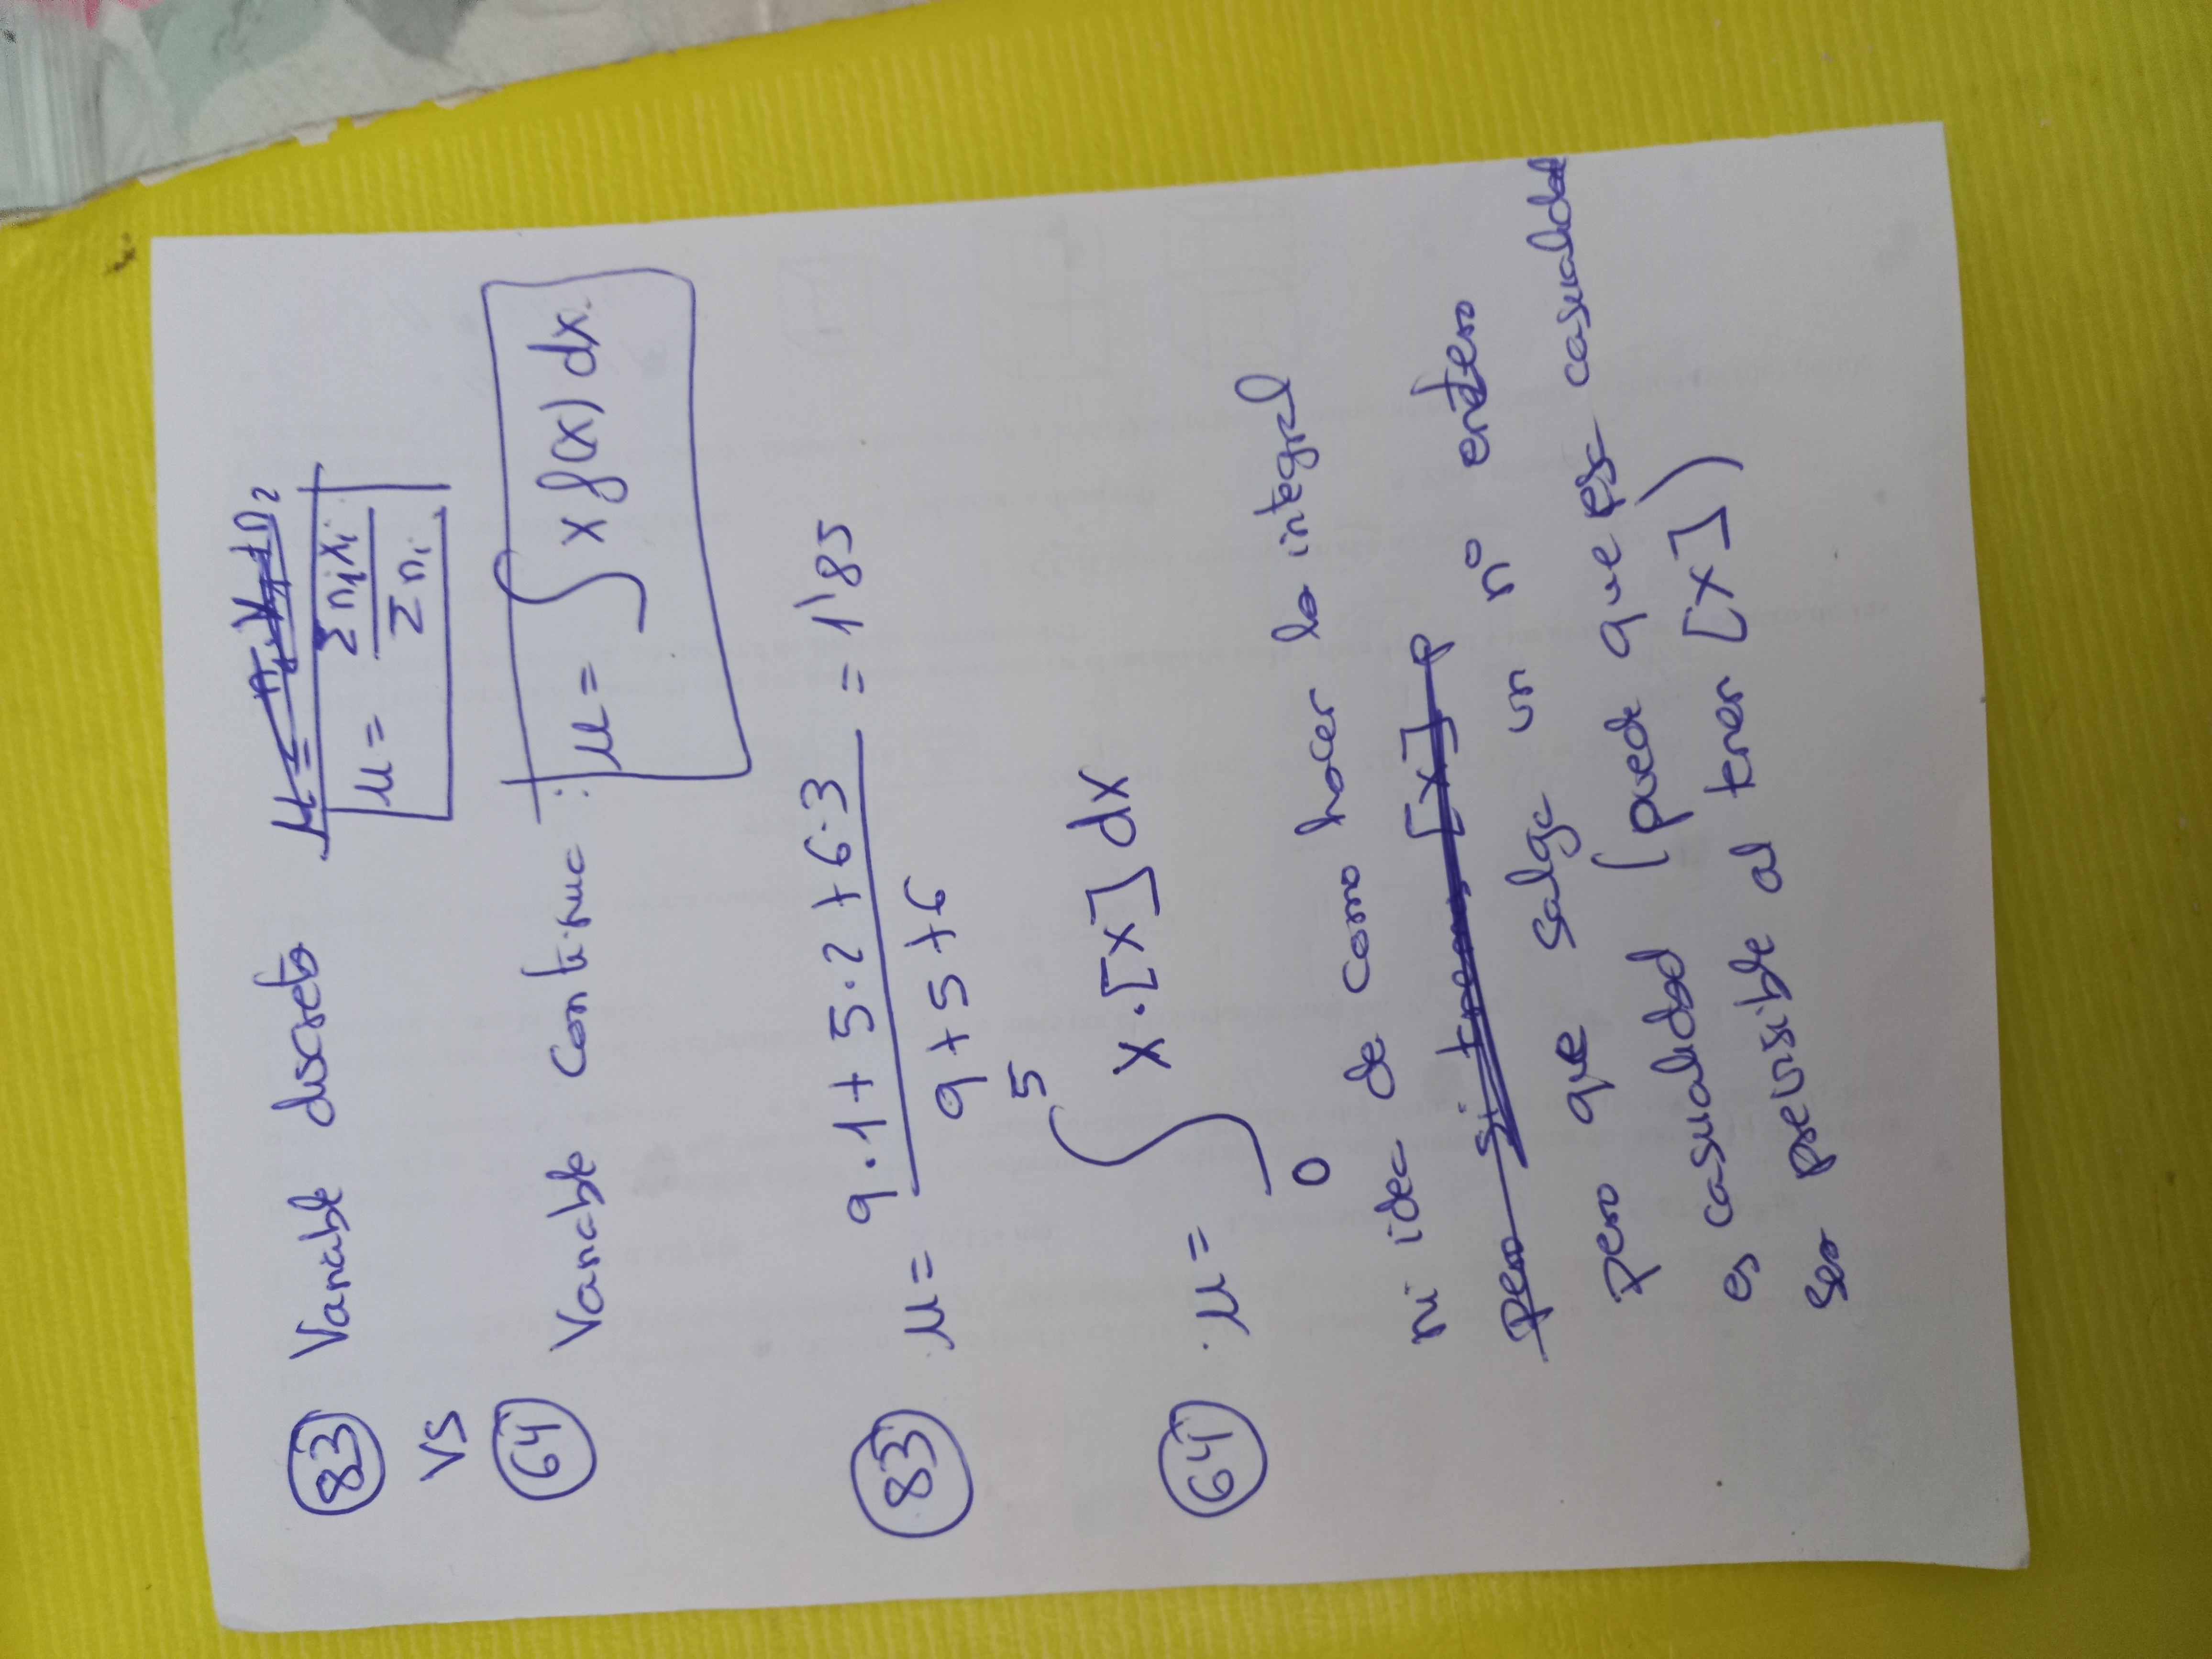 83 Variable discreta μ = n₁·X₁+n₂
μ = Σ nᵢxᵢ / Σ nᵢ
VS
64 Variable continua : μ = ∫ x f(x) dx.
83 μ = (9·1 + 5·2 + 6·3) / (9+5+6) = 1'85
64 μ = ∫₀⁵ x·[x] dx
ni idea de como hacer la integral
pero si tenemos [x] p
pero que salga un nº entero
es casualidad (puede que esa casualidad
sea previsible al tener [x])